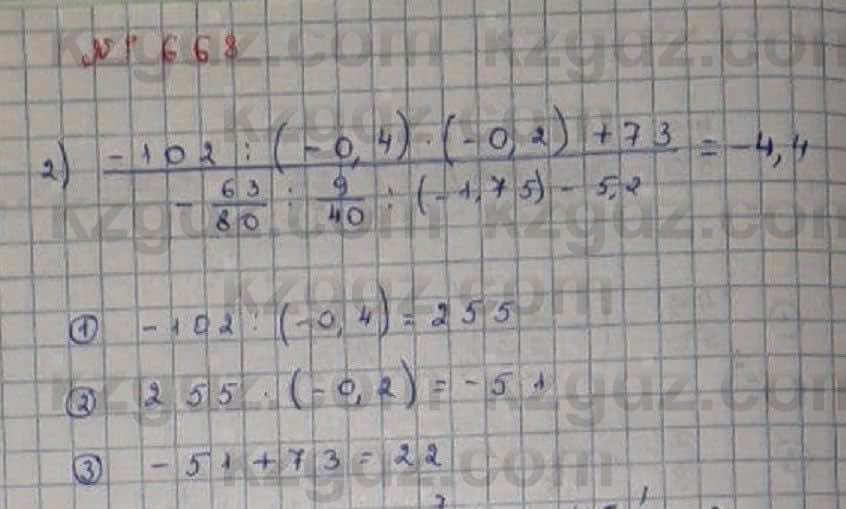 № 668
2) (-102 : (-0,4) · (-0,2) + 73) / (- 63/80 : 9/40 : (-1,75) - 5,2) = -4,4
① -102 : (-0,4) = 255
② 255 · (-0,2) = -51
③ -51 + 73 = 22